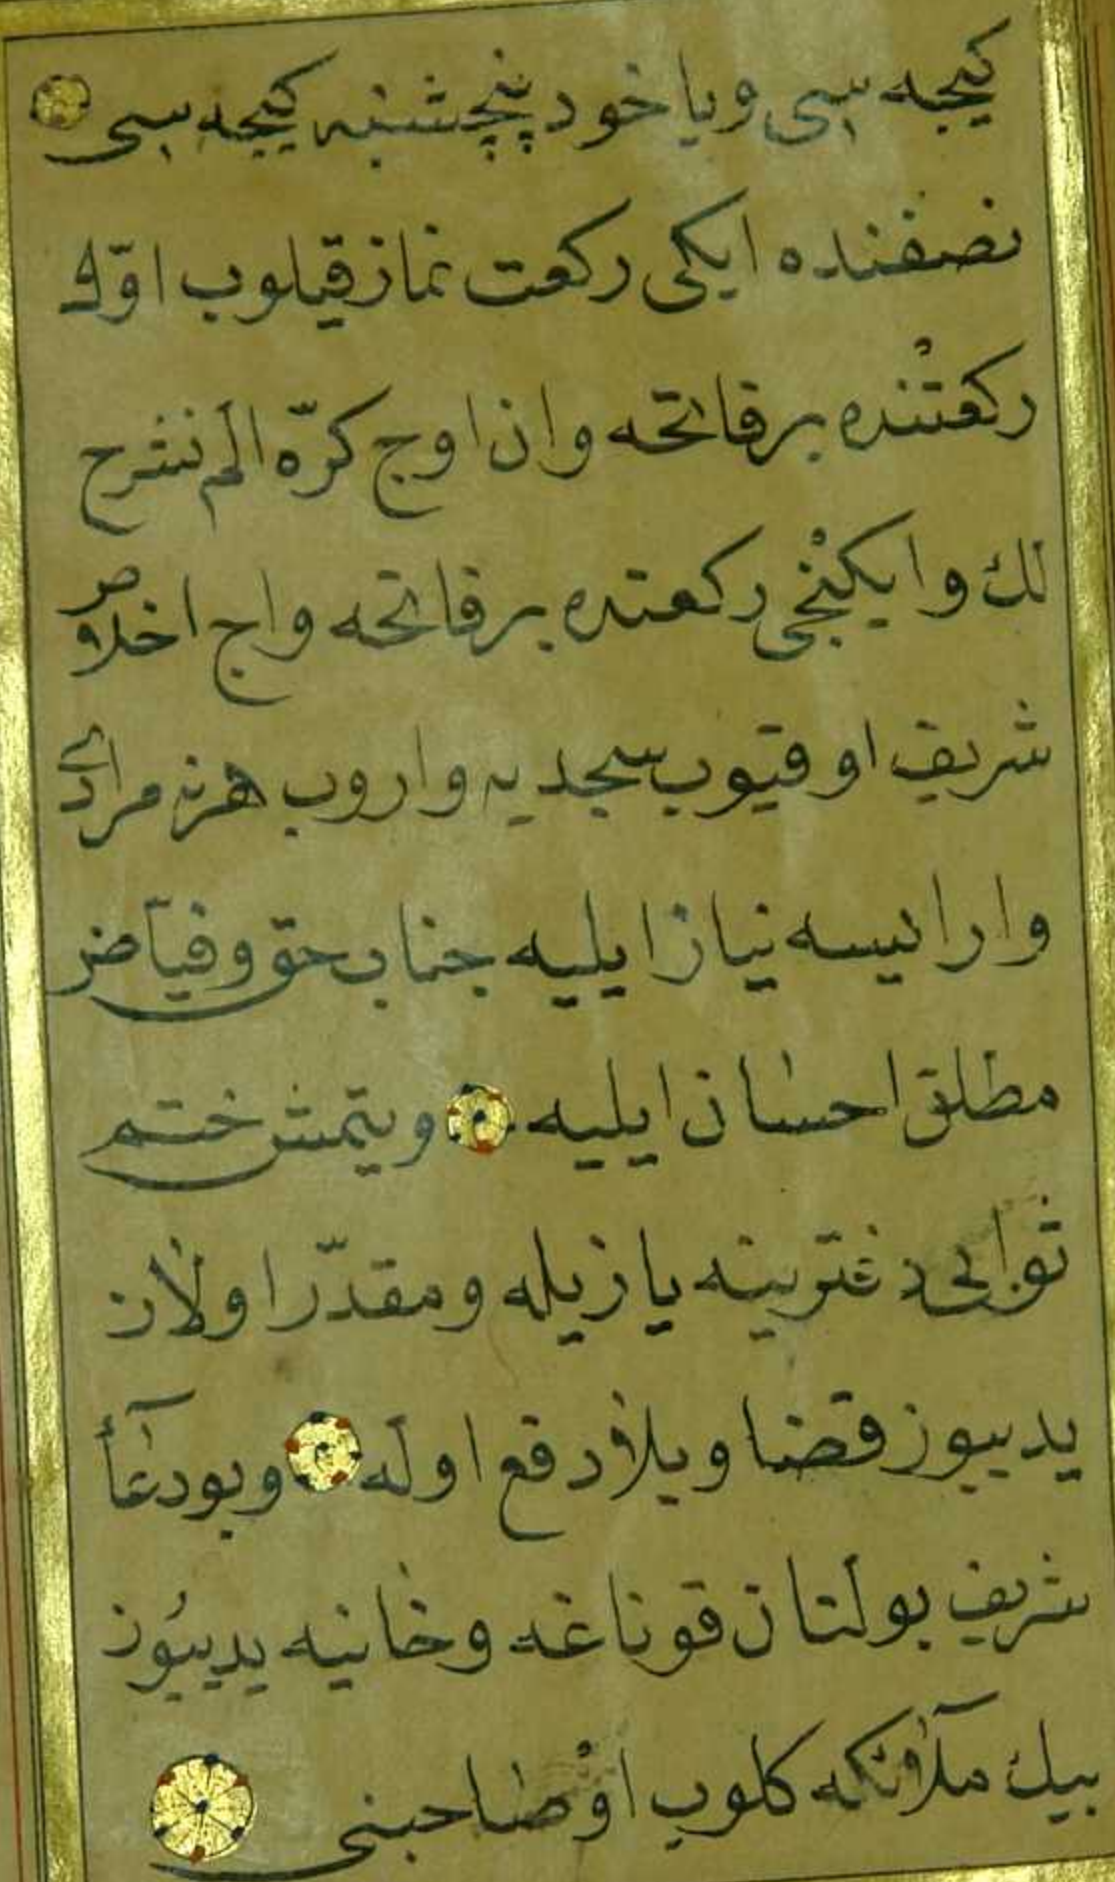 كیجه سی ویا خود پنچشنبه كیجه سی
نصفنده ایكی ركعت نماز قیلوب اوّل
ركعتنده بر فاتحه وان اوج كرّه الم نشرح
لك وایكنجی ركعتده بر فاتحه واج اخلاص
شریف اوقیوب سجدیه واروب هر نه مرادی
وار ایسه نیاز ایلیه جناب حق وفیّاض
مطلق احسان ایلیه ویتمش ختم
ثوابی دفترینه یازیله ومقدّر اولان
یدییوز قضا وبلا دفع اوله وبو دعآء
شریف بولنان قوناغه وخانیه یدییوز
بیك ملآئكه كلوب او صاحبنی